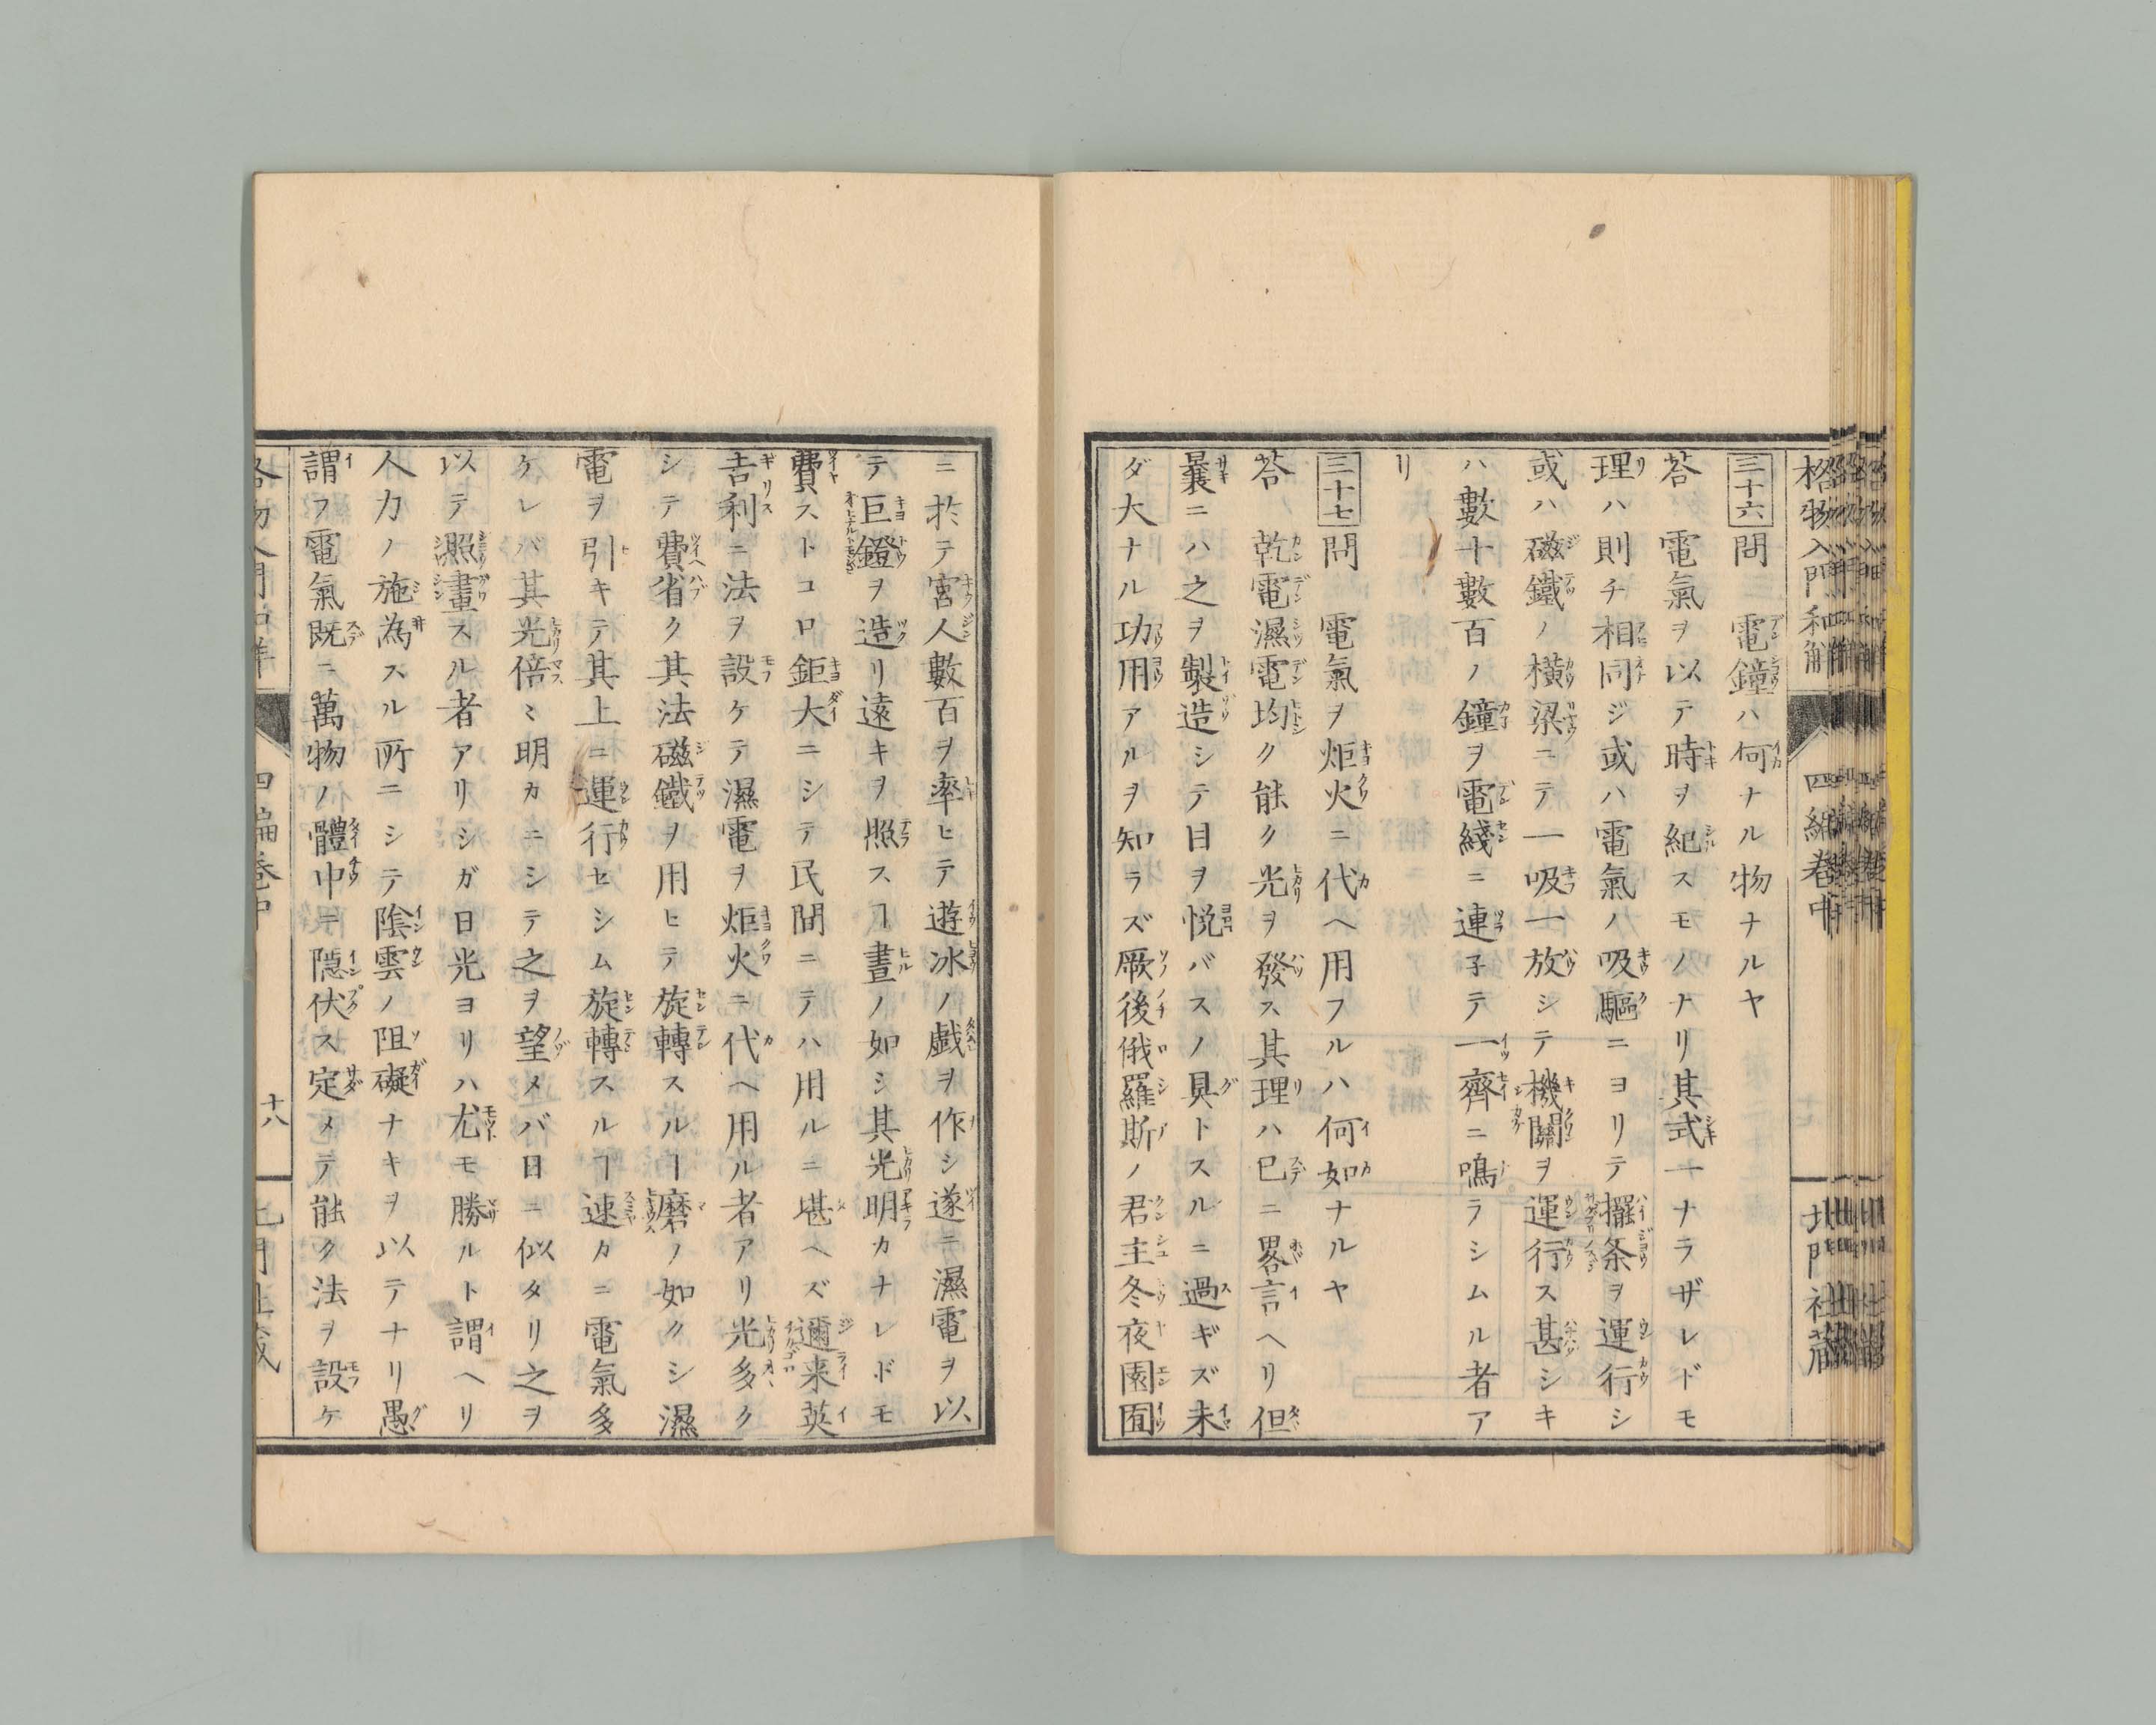 格物入門和解 四編卷中 北門社藏
三十六 問 電鐘ハ何ナル物ナルヤ
荅 電氣ヲ以テ時ヲ紀スモノナリ其式一ナラザレドモ
理ハ則チ相同ジ或ハ電氣ノ吸驅ニヨリテ擺条ヲ運行シ
或ハ磁鐵ノ横梁ニテ一吸一放シテ機關ヲ運行ス甚シキ
ハ數十數百ノ鐘ヲ電綫ニ連子テ一齊ニ鳴ラシムル者ア
リ
三十七 問 電氣ヲ炬火ニ代ヘ用フルハ何如ナルヤ
荅 乾電濕電均ク能ク光ヲ發ス其理ハ已ニ畧言ヘリ但
曩ニハ之ヲ製造シテ目ヲ悦バスノ具トスルニ過ギズ未
ダ大ナル功用アルヲ知ラズ厥後俄羅斯ノ君主冬夜園囿
ニ於テ宮人數百ヲ率ヒテ遊冰ノ戯ヲ作シ遂ニ濕電ヲ以
テ巨鐙ヲ造リ遠キヲ照スヿ晝ノ如シ其光明カナレドモ
費ストコロ鉅大ニシテ民間ニテハ用ルニ堪ヘズ邇来英
吉利ニ法ヲ設ケテ濕電ヲ炬火ニ代ヘ用ル者アリ光多ク
シテ費省ク其法磁鐵ヲ用ヒテ旋轉スルヿ磨ノ如クシ濕
電ヲ引キテ其上ニ運行セシム旋轉スルヿ速カニ電氣多
ケレバ其光倍ミ明カニシテ之ヲ望メバ日ニ似タリ之ヲ
以テ照畫スル者アリシガ日光ヨリハ尤モ勝ルト謂ヘリ
人力ノ施為スル所ニシテ陰雲ノ阻礙ナキヲ以テナリ愚
謂フ電氣既ニ萬物ノ體中ニ隠伏ス定メテ能ク法ヲ設ケ
四編卷中 十八